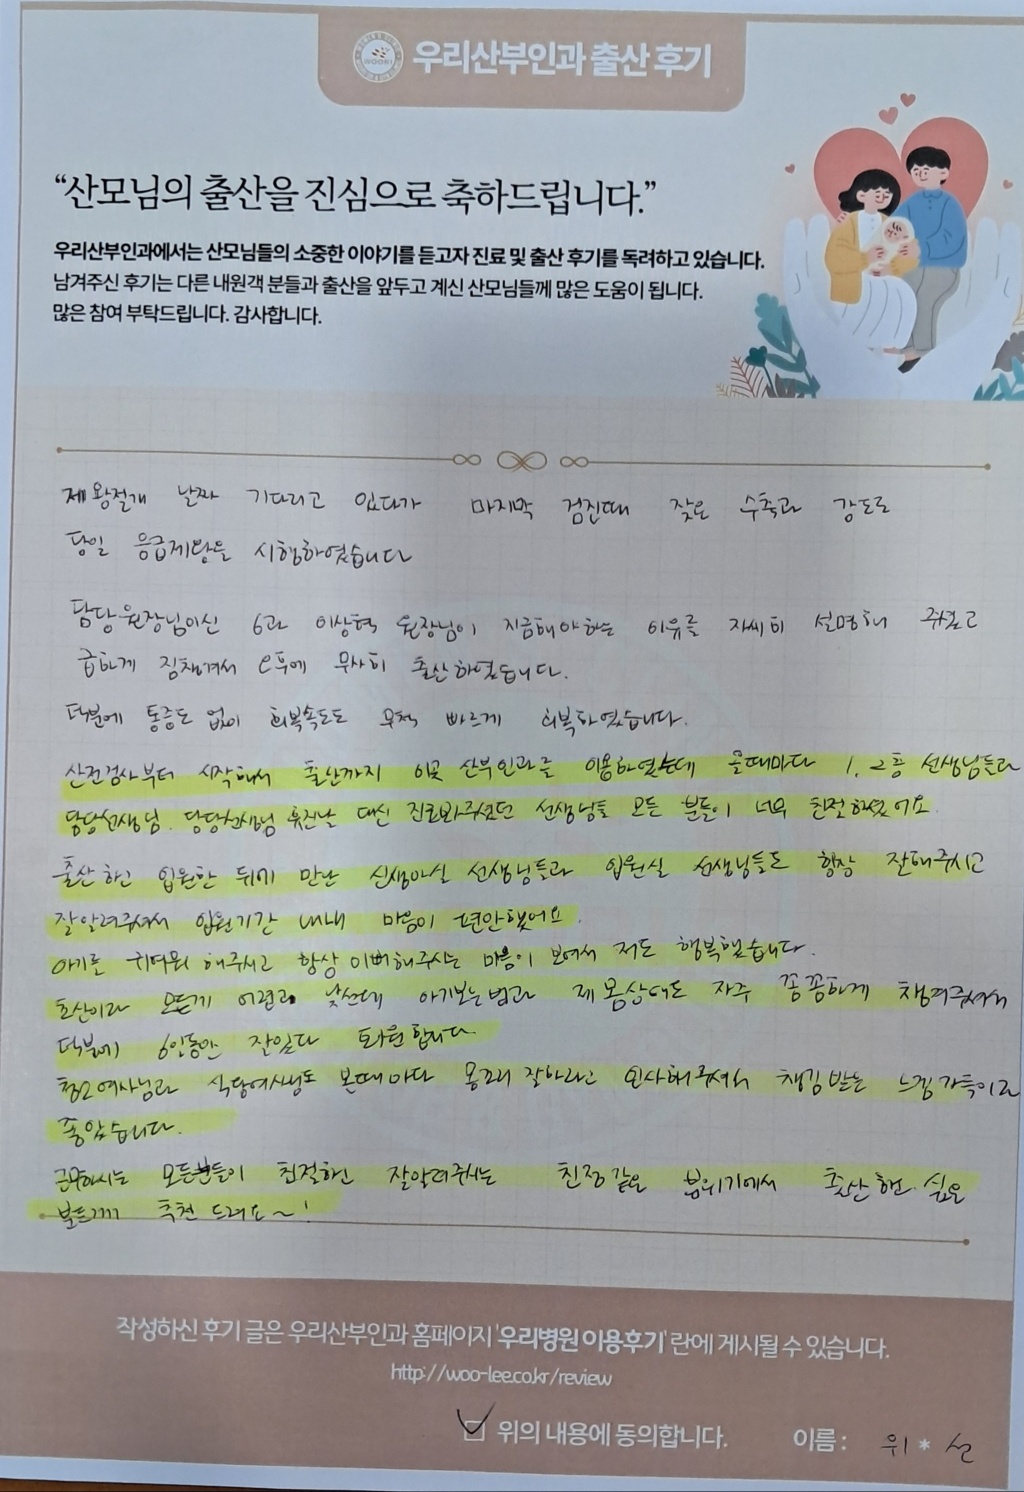 WOORI
우리산부인과 출산 후기
“산모님의 출산을 진심으로 축하드립니다.”
우리산부인과에서는 산모님들의 소중한 이야기를 듣고자 진료 및 출산 후기를 독려하고 있습니다.
남겨주신 후기는 다른 내원객 분들과 출산을 앞두고 계신 산모님들께 많은 도움이 됩니다.
많은 참여 부탁드립니다. 감사합니다.
제왕절개 날짜 기다리고 있다가 마지막 검진때 잦은 수축과 강도로
당일 응급제왕을 시행하였습니다
담당원장님이신 6과 이상혁 원장님이 지금해야하는 이유를 자세히 설명해 주셨고
급하게 짐챙겨서 오후에 무사히 출산하였습니다.
덕분에 통증도 없이 회복속도도 무척 빠르게 회복하였습니다.
산전검사부터 시작해서 출산까지 이곳 산부인과를 이용하였는데 올때마다 1, 2층 선생님들과
담당선생님. 담당선생님 휴진날 대신 진료봐주셨던 선생님들 모든 분들이 너무 친절하셨어요.
출산하고 입원한 뒤에 만난 신생아실 선생님들과 입원실 선생님들도 항상 잘해주시고
잘알려주셔서 입원기간 내내 마음이 편안했어요.
아기를 귀여워 해주시고 항상 이뻐해주시는 마음이 보여서 저도 행복했습니다.
초산이라 모든게 어렵고 낯선데 아기보는법과 제 몸상태도 자주 꼼꼼하게 챙겨주셔서
덕분에 6인동안 잘있다 퇴원합니다.
청소여사님과 식당여사님도 볼때마다 몸조리 잘하라고 인사해주셔서 챙김받는 느낌가득이라
좋았습니다.
근무하시는 모든분들이 친절하신 잘알려주시는 친정같은 분위기에서 출산하고 싶은
분들께 추천 드려요~!
작성하신 후기 글은 우리산부인과 홈페이지 '우리병원 이용후기' 란에 게시될 수 있습니다.
http://woo-lee.co.kr/review
위의 내용에 동의합니다. 이름 : 위 * 선